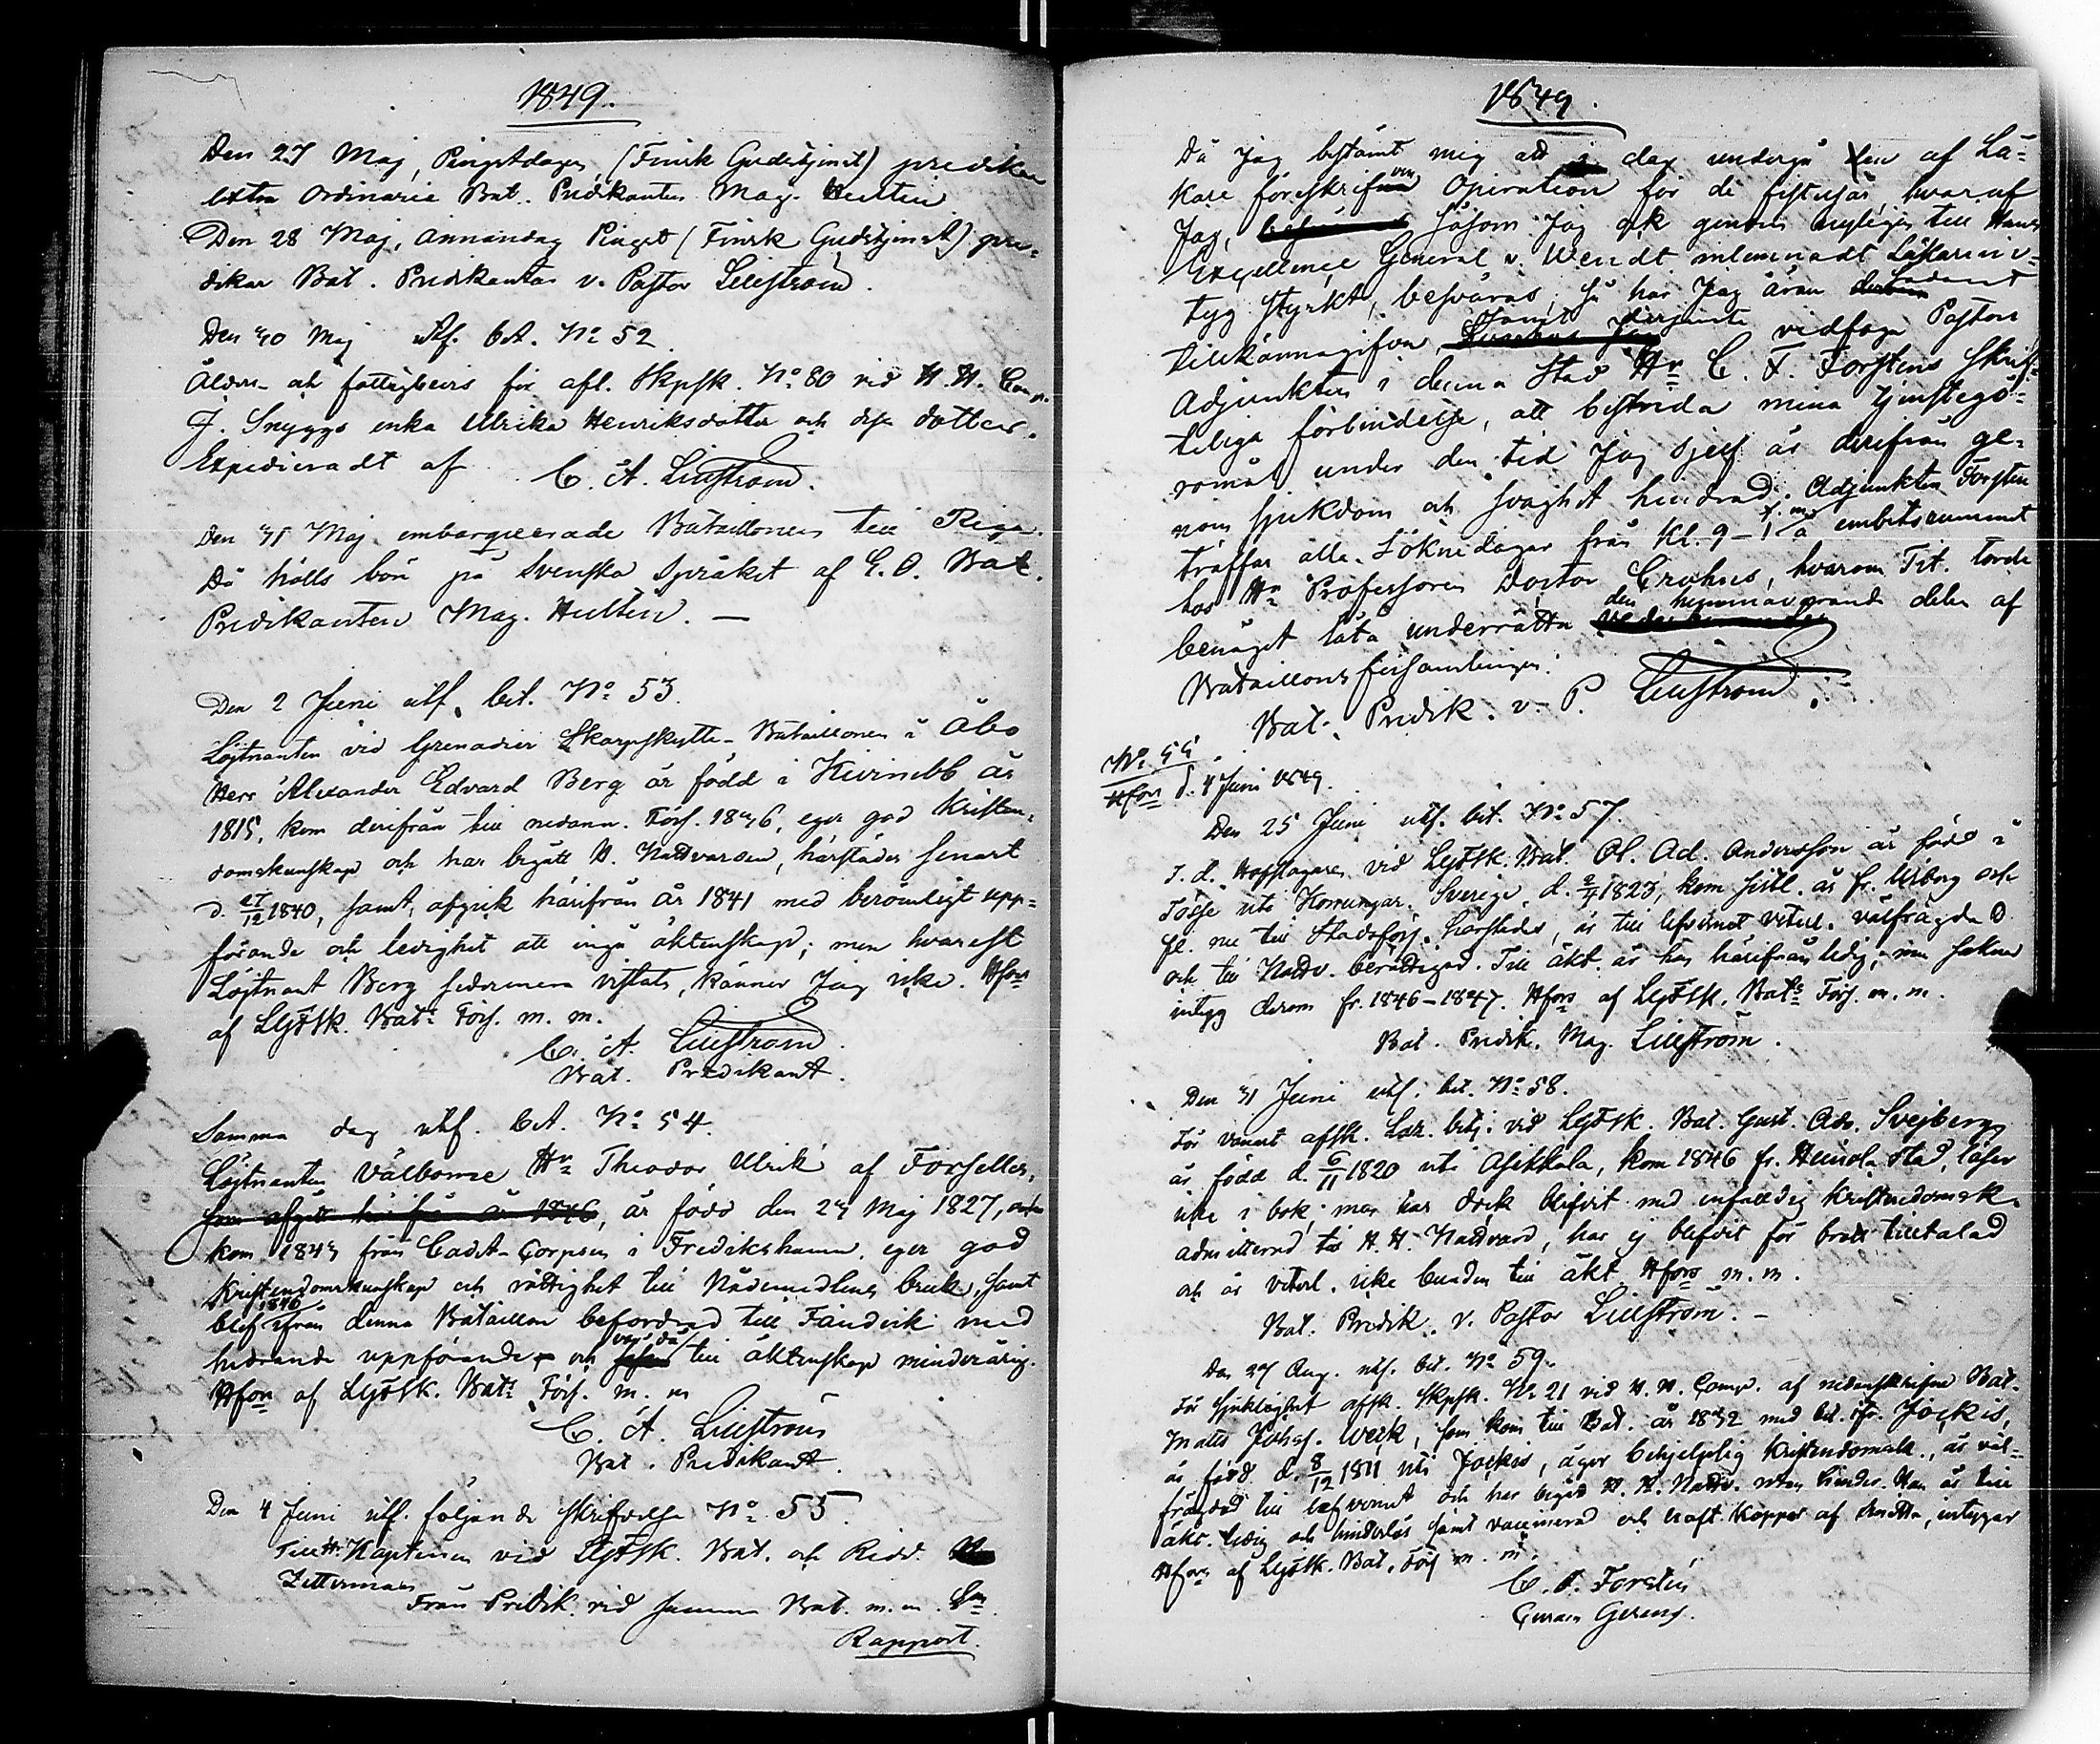 1849.
Den 27 Maj, Pingstdagen, (Finsk Gudstjenst) predikar
extra Ordinarie Bat. Predikanten Mag. Hultin
Den 28 Maj, Annandag Pingst (Finsk Gudstjenst) pre-
dikar Bat. Predikanten v. Pastor Lillström.
Den 30 Maj utf. bet. No 52
Ålders- och fattigbevis för afl. Skpsk. No 80 vid H. H. Comp.
J. Snyggs enka Ulrika Henriksdotter och dess dotter.
Expedieradt af C. A. Lillström.
Den 31 Maj embarqverade Bataillonen till Riga.
Då hölls bön på Svenska Språket af E. O. Bat.
Predikanten Mag. Hultin. —
Den 2 Juni utf. bet. No 53.
Löjtnanten vid Grenadier Skarpskytte-Bataillonen i Åbo
Herr Alexander Edvard Berg är född i Kivinebb år
1815, kom derifrån till nedann. Förs. 1836, eger god Kristen-
domskunskap och har begått H. Nattvarden, härstädes senast
d. 27/12 1840, samt afgick härifrån år 1841 med berömligt upp-
förande och ledighet att ingå äktenskap; men hvarest
Löjtnant Berg sedermera vistats, känner Jag icke. Hfors
af LgFSk. Bats Förs. m. m.
C. A. Lillström.
Bat. Predikant.
Samma dag utf. bet. No 54.
Löjtnanten Välborne Hr Theodor Ulrik af Forselles,
som afgått härifrån år 1846, är född den 23 Maj 1827, och
kom 1843 från Cadet-Corpsen i Fredrikshamn, eger god
Kristendomskunskap och rättighet till Nådemedlens bruk, samt
1846
blef ifrån denna Bataillon befordrad till Fändrik med
hedrande uppförande och var då till äktenskap minderårig.
Hfors af LgFSk. Bats Förs. m. m
C. A. Lillström
Bat. Predikant.
Den 4 Juni utf. följande skrifvelse No 55.
Till Hr Kaptenen vid LgFSk. Bat. och Ridd.
Zitterman
Från Predik. vid samma Bat. m. m.
Rapport.
1849.
Då Jag bestämt mig att i dag undergå den af Lä-
kare föreskrifven Operation för de fistelsår, hvaraf
Jag, såsom Jag ock genom nyligen till Hans
Excellence General v. Wendt inlemnadt Läkareinv-
tyg styrkt, besväras, så har Jag äran sådant
tillkännagifva, samt derjemte vidfoga Pastors
Adjunkten i denna Stad Hr C. F. Forstens skrift-
teliga förbindelse, att bestrida mina tjenstegö-
romål under den tid Jag sjelf är derifrån ge-
nom sjukdom och svaghet hindrad. Adjunkten Forsten
träffas alla Söknedagar från Kl. 9–1 f. m. å embetsrummet
hos Hr Professoren Doctor Crohns, hvarom Tit. torde
benäget låta underrätta den hemmavarande delen af
Bataillonsförsamlingen.
Bat. Predik. v. P. Lillström
No 55
Hfors d. 4 Juni 1849.
Den 25 Juni utf. bet. No 57.
F. d. Hofslagaren vid LgFSk. Bat. Ol. Ad. Andersson är född i
Tösse uti Sverige, d. 2/4 1823, kom sistl. år fr. Viborg och
fl. nu till Stadsförs. härstädes, är till lefvernet veterl. välfrägdad
och till Nattv. berättigad. Till äkt. är han härifrån ledig, men saknar
intyg derom fr. 1846–1847. Hfors af LgFSk. Bats Förs. m. m.
Bat. Predik. Mag. Lillström.
Den 31 Juni utf. bet. No 58.
För vanart afsk. Laz. betj. vid LgFSk. Bat. Gust. Adr. Svejberg
är född d. 6/11 1820 uti Asikkala, kom 1846 fr. Heinola Stad, läser
icke i bok; men har dock blifvit med enfaldig kristendomsk.
admitterad till H. H. Nattvard, har ej blifvit för brott tilltalad
och är veterl. icke bunden till äkt. Hfors m. m.
Bat. Predik. v. Pastor Lillström. –
Den 27 Aug. utf. bet. No 59.
För sjuklighet afsk. Skpsk. No 21 vid H. H. Comp. af nedanskrifne Bat.
Matts Johss. Werk, som kom till Bat. år 1832 med bet. ifr. Jockis,
är född d. 8/12 1811 uti Jockis, äger behjelplig Kristendomsk., är väl-
frägdad till lefvernet och har begått H. H. Nattv. utan hinder. Han är till
äkt. ledig och hinderlös samt vaccinerad och haft koppor af smitta, intygar
Hfors af LgFSk. Bat. Förs m. m.
C. F. Forstén
Curam Gerens.